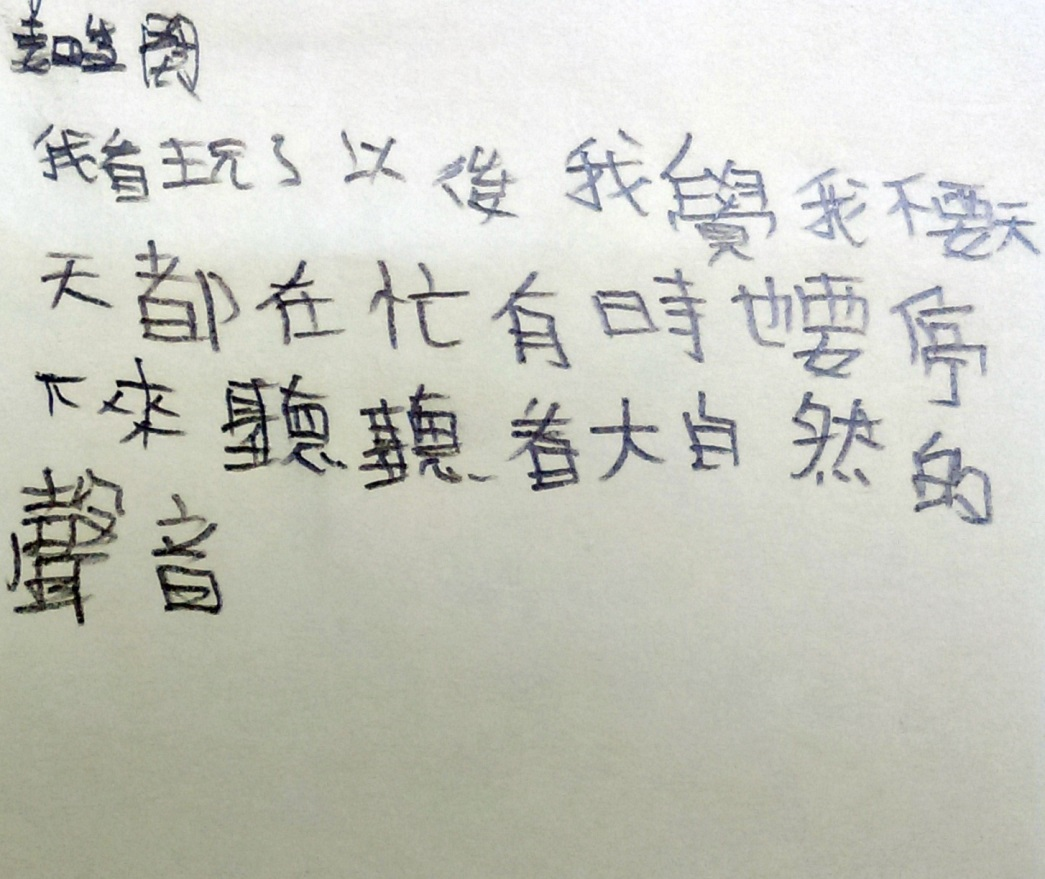 圈
我看玩了以後我覺我不要天
天都在忙有時也要停
下來聽聽着大自然的
聲音